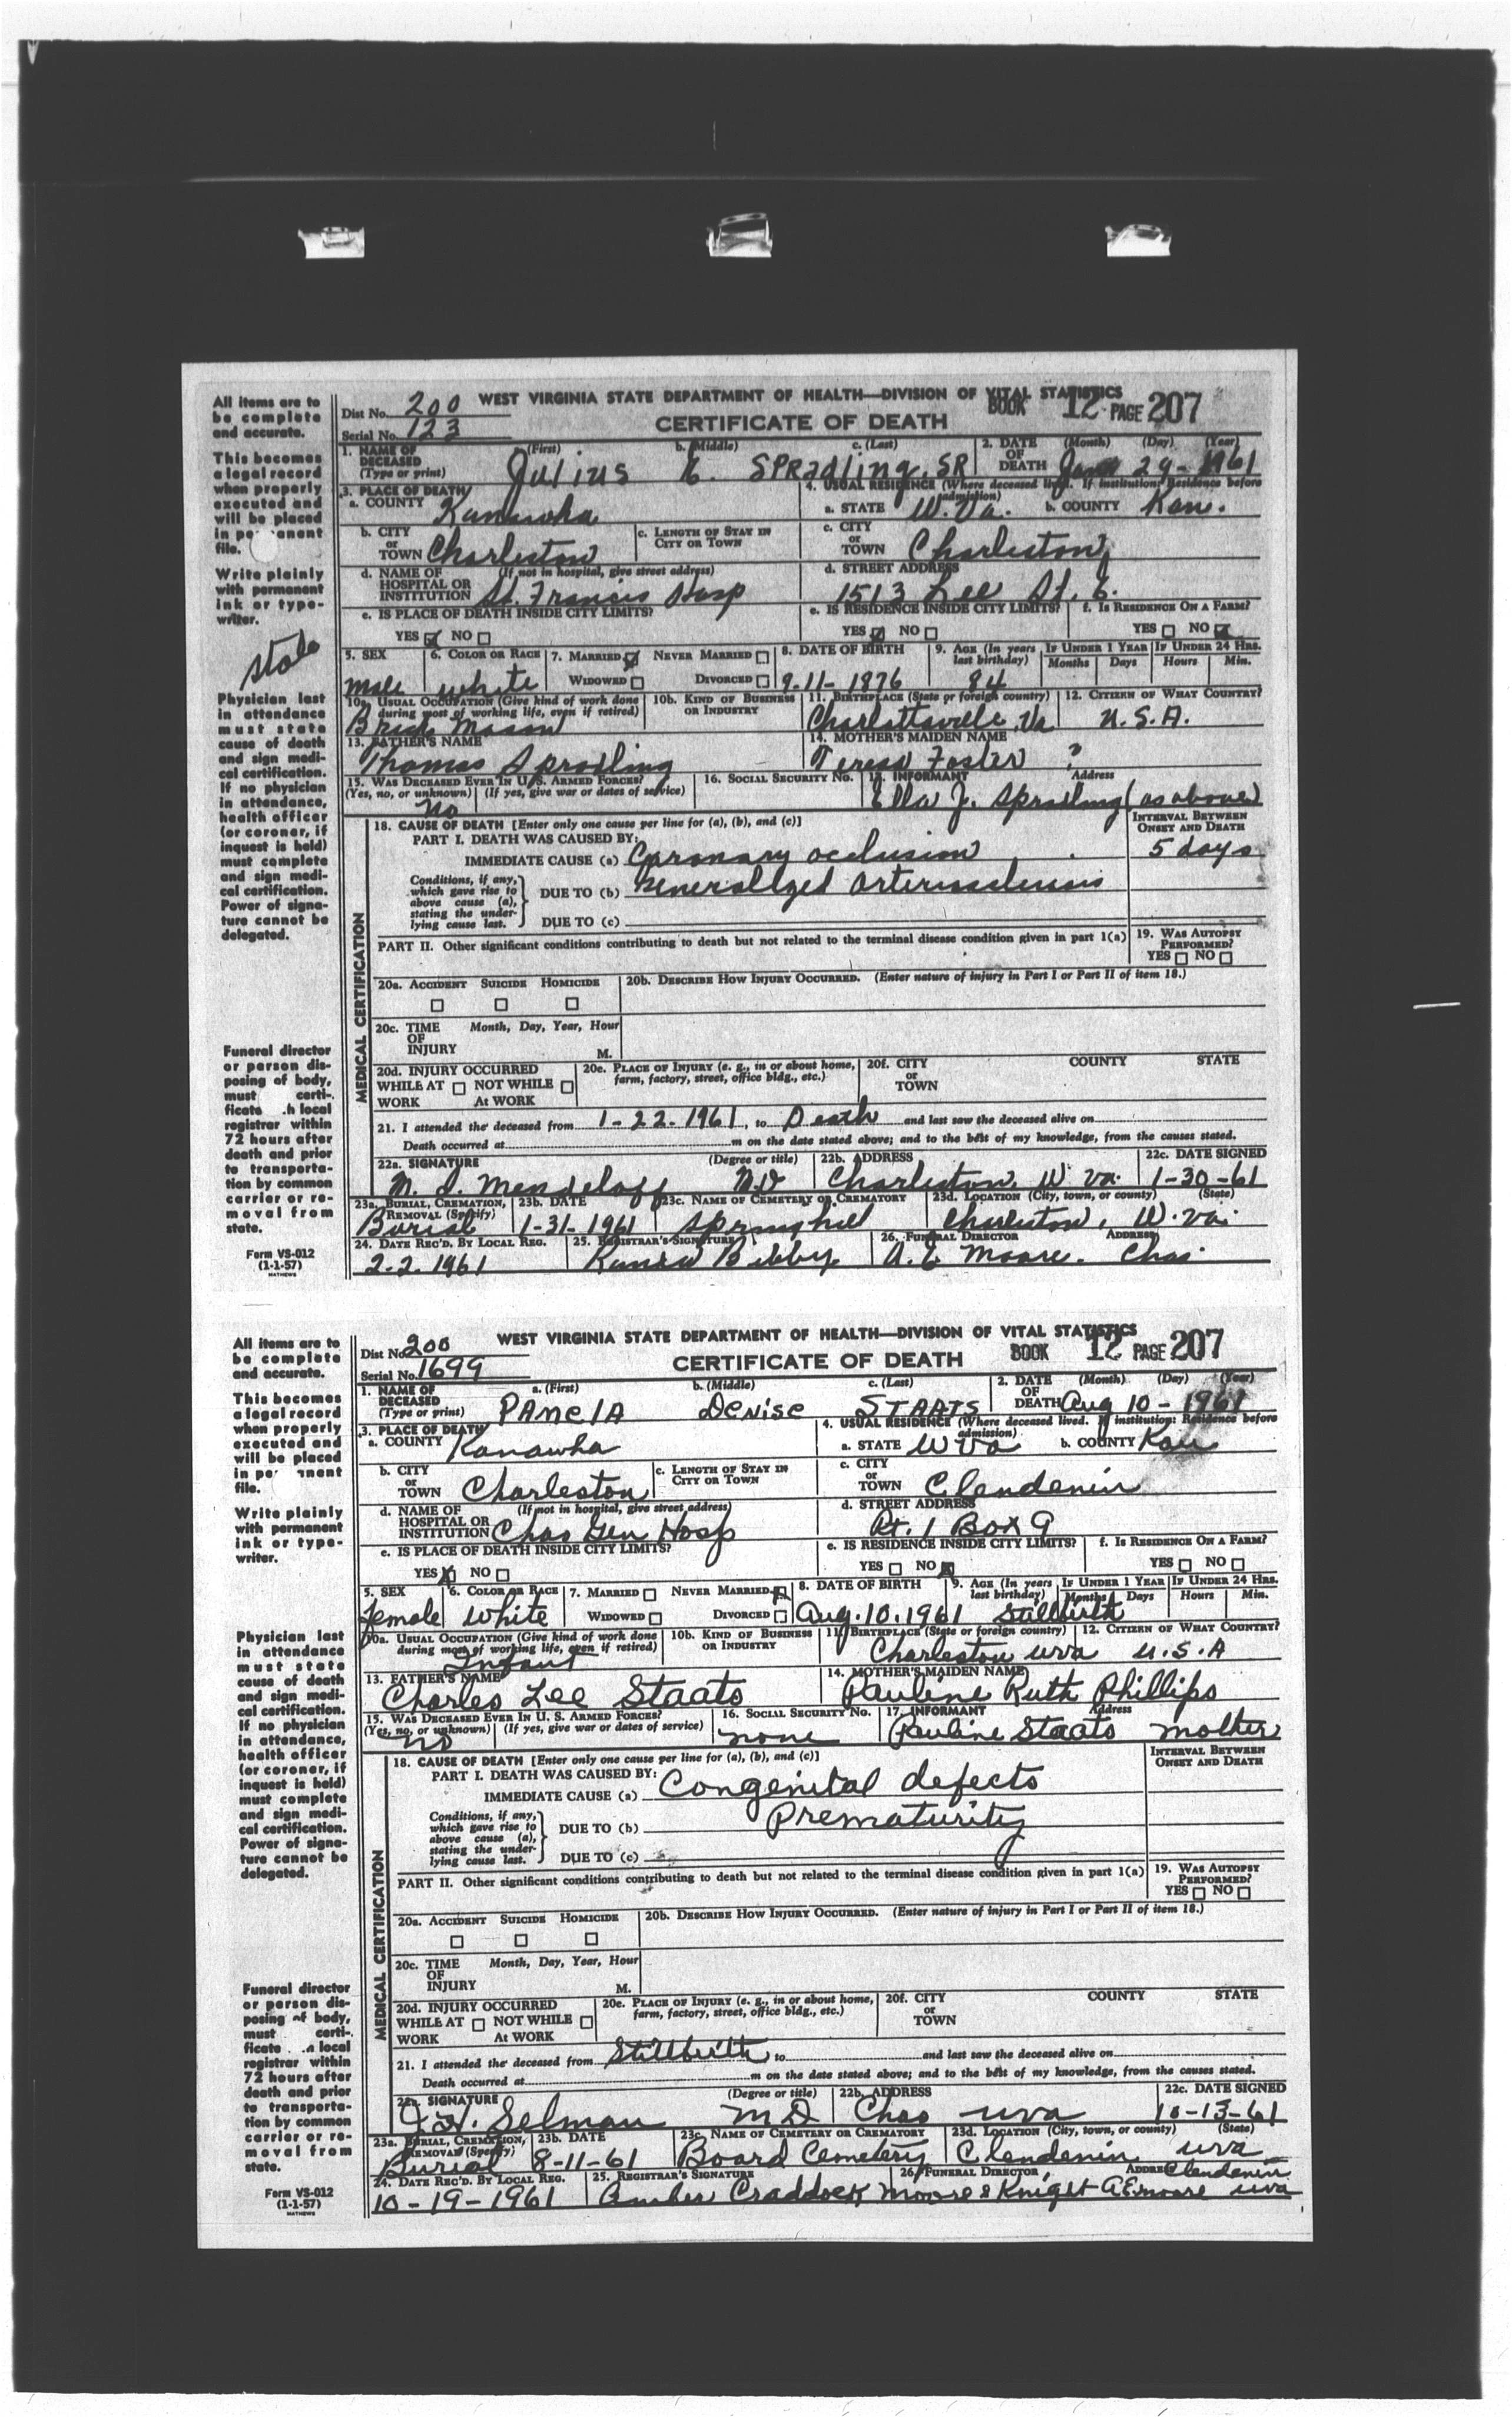 All items are to
be complete
and accurate.
This becomes
a legal record
when properly
executed and
will be placed
in pe anent
file.
Write plainly
with permanent
ink or type-
writer.
Physician last
in attendance
must state
cause of death
and sign medi-
cal certification.
If no physician
in attendance,
health officer
(or coroner, if
inquest is held)
must complete
and sign medi-
cal certification.
Power of signa-
ture cannot be
delegated.
Funeral director
or person dis-
posing of body,
must certi-
ficate .h local
registrar within
72 hours after
death and prior
to transporta-
tion by common
carrier or re-
moval from
state.
Form VS-012
(1-1-57)
MATHEWS
WEST VIRGINIA STATE DEPARTMENT OF HEALTH—DIVISION OF VITAL STATISTICS
Dist No. 200 BOOK 12 PAGE 207
Serial No. 123 CERTIFICATE OF DEATH
1. NAME OF DECEASED (Type or print) (First) Julius b. (Middle) c. (Last) SPRadling, SR 2. DATE OF DEATH (Month) (Day) (Year) 29- 1961
3. PLACE OF DEATH a. COUNTY Kanawha 4. USUAL RESIDENCE (Where deceased lived. If institution: Residence before admission) a. STATE W. Va. b. COUNTY Kan.
b. CITY or TOWN Charleston c. LENGTH OF STAY IN CITY OR TOWN c. CITY or TOWN Charleston
d. NAME OF HOSPITAL OR INSTITUTION (If not in hospital, give street address) St. Francis Hosp d. STREET ADDRESS 1513 Lee St. E.
e. IS PLACE OF DEATH INSIDE CITY LIMITS? e. IS RESIDENCE INSIDE CITY LIMITS? f. IS RESIDENCE ON A FARM?
YES NO YES NO YES NO
5. SEX male 6. COLOR OR RACE white 7. MARRIED NEVER MARRIED WIDOWED DIVORCED 8. DATE OF BIRTH 9-11-1876 9. AGE (In years last birthday) 84 IF UNDER 1 YEAR Months Days IF UNDER 24 HRS. Hours Min.
10a. USUAL OCCUPATION (Give kind of work done during most of working life, even if retired) Brick Mason 10b. KIND OF BUSINESS OR INDUSTRY 11. BIRTHPLACE (State or foreign country) Charlottsville Va 12. CITIZEN OF WHAT COUNTRY? U.S.A.
13. FATHER'S NAME Thomas Spradling 14. MOTHER'S MAIDEN NAME Teresa Foster ?
15. WAS DECEASED EVER IN U. S. ARMED FORCES? (Yes, no, or unknown) (If yes, give war or dates of service) no 16. SOCIAL SECURITY NO. 17. INFORMANT Address Ella J. Spradling (as above)
18. CAUSE OF DEATH [Enter only one cause per line for (a), (b), and (c)] INTERVAL BETWEEN ONSET AND DEATH
PART I. DEATH WAS CAUSED BY:
IMMEDIATE CAUSE (a) Coronary occlusion 5 days
Conditions, if any, which gave rise to above cause (a), stating the underlying cause last. DUE TO (b) Generalized arteriosclerosis
DUE TO (c)
PART II. Other significant conditions contributing to death but not related to the terminal disease condition given in part 1(a) 19. WAS AUTOPSY PERFORMED? YES NO
20a. ACCIDENT SUICIDE HOMICIDE 20b. DESCRIBE HOW INJURY OCCURRED. (Enter nature of injury in Part I or Part II of item 18.)
20c. TIME OF INJURY Month, Day, Year, Hour M.
20d. INJURY OCCURRED WHILE AT WORK NOT WHILE At WORK 20e. PLACE OF INJURY (e. g., in or about home, farm, factory, street, office bldg., etc.) 20f. CITY or TOWN COUNTY STATE
MEDICAL CERTIFICATION
21. I attended the deceased from 1-22-1961, to Death and last saw the deceased alive on
Death occurred at m on the date stated above; and to the best of my knowledge, from the causes stated.
22a. SIGNATURE (Degree or title) M.D 22b. ADDRESS Charleston, W. Va. 22c. DATE SIGNED 1-30-61
23a. BURIAL, CREMATION, REMOVAL (Specify) Burial 23b. DATE 1-31-1961 23c. NAME OF CEMETERY OR CREMATORY Springhill 23d. LOCATION (City, town, or county) (State) Charleston, W. Va.
24. DATE REC'D. BY LOCAL REG. 2-2-1961 25. REGISTRAR'S SIGNATURE Bibby 26. FUNERAL DIRECTOR ADDRESS A. E. Moore. Chas.
All items are to
be complete
and accurate.
This becomes
a legal record
when properly
executed and
will be placed
in pe nent
file.
Write plainly
with permanent
ink or type-
writer.
Physician last
in attendance
must state
cause of death
and sign medi-
cal certification.
If no physician
in attendance,
health officer
(or coroner, if
inquest is held)
must complete
and sign medi-
cal certification.
Power of signa-
ture cannot be
delegated.
Funeral director
or person dis-
posing of body,
must certi-
ficate local
registrar within
72 hours after
death and prior
to transporta-
tion by common
carrier or re-
moval from
state.
Form VS-012
(1-1-57)
MATHEWS
WEST VIRGINIA STATE DEPARTMENT OF HEALTH—DIVISION OF VITAL STATISTICS
Dist No. 200 BOOK 12 PAGE 207
Serial No. 1699 CERTIFICATE OF DEATH
1. NAME OF DECEASED (Type or print) a. (First) PAMELA b. (Middle) DENISE c. (Last) STAATS 2. DATE OF DEATH (Month) (Day) (Year) Aug 10 - 1961
3. PLACE OF DEATH a. COUNTY Kanawha 4. USUAL RESIDENCE (Where deceased lived. If institution: Residence before admission) a. STATE W Va b. COUNTY Kan
b. CITY or TOWN Charleston c. LENGTH OF STAY IN CITY OR TOWN c. CITY or TOWN Clendenin
d. NAME OF HOSPITAL OR INSTITUTION (If not in hospital, give street address) Chas Gen Hosp d. STREET ADDRESS Rt. 1 Box 9
e. IS PLACE OF DEATH INSIDE CITY LIMITS? e. IS RESIDENCE INSIDE CITY LIMITS? f. IS RESIDENCE ON A FARM?
YES NO YES NO YES NO
5. SEX Female 6. COLOR OR RACE White 7. MARRIED NEVER MARRIED WIDOWED DIVORCED 8. DATE OF BIRTH Aug. 10. 1961 9. AGE (In years last birthday) IF UNDER 1 YEAR Months Days IF UNDER 24 HRS. Hours Min. Stillbirth
10a. USUAL OCCUPATION (Give kind of work done during most of working life, even if retired) Infant 10b. KIND OF BUSINESS OR INDUSTRY 11. BIRTHPLACE (State or foreign country) Charleston WVa 12. CITIZEN OF WHAT COUNTRY? U.S.A
13. FATHER'S NAME Charles Lee Staats 14. MOTHER'S MAIDEN NAME Pauline Ruth Phillips
15. WAS DECEASED EVER IN U. S. ARMED FORCES? (Yes, no, or unknown) (If yes, give war or dates of service) no 16. SOCIAL SECURITY NO. none 17. INFORMANT Address Pauline Staats mother
18. CAUSE OF DEATH [Enter only one cause per line for (a), (b), and (c)] INTERVAL BETWEEN ONSET AND DEATH
PART I. DEATH WAS CAUSED BY:
IMMEDIATE CAUSE (a) Congenital defects
Conditions, if any, which gave rise to above cause (a), stating the underlying cause last. DUE TO (b) Prematurity
DUE TO (c)
PART II. Other significant conditions contributing to death but not related to the terminal disease condition given in part 1(a) 19. WAS AUTOPSY PERFORMED? YES NO
20a. ACCIDENT SUICIDE HOMICIDE 20b. DESCRIBE HOW INJURY OCCURRED. (Enter nature of injury in Part I or Part II of item 18.)
20c. TIME OF INJURY Month, Day, Year, Hour M.
20d. INJURY OCCURRED WHILE AT WORK NOT WHILE At WORK 20e. PLACE OF INJURY (e. g., in or about home, farm, factory, street, office bldg., etc.) 20f. CITY or TOWN COUNTY STATE
MEDICAL CERTIFICATION
21. I attended the deceased from Stillbirth to and last saw the deceased alive on
Death occurred at m on the date stated above; and to the best of my knowledge, from the causes stated.
22a. SIGNATURE J. H. Selman (Degree or title) MD 22b. ADDRESS Chas WVa 22c. DATE SIGNED 10-13-61
23a. BURIAL, CREMATION, REMOVAL (Specify) Burial 23b. DATE 8-11-61 23c. NAME OF CEMETERY OR CREMATORY Board Cemetery 23d. LOCATION (City, town, or county) (State) Clendenin WVa
24. DATE REC'D. BY LOCAL REG. 10-19-1961 25. REGISTRAR'S SIGNATURE Amber Craddock 26. FUNERAL DIRECTOR Moore & Knight A E Moore ADDRESS Clendenin WVa